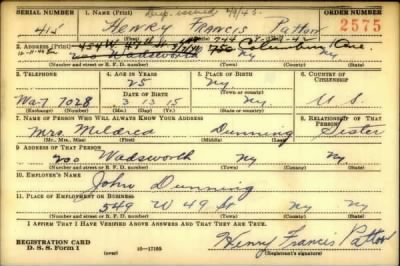 REGISTRATION CARD
SERIAL NUMBER 1. NAME (Print) Dup. issued ORDER NUMBER
415 Henry Francis Patton 2575
2. ADDRESS (Print)
750 Columbus Ave.
200 Wadsworth Ny Ny
(Number and street or R. F. D. number) (Town) (County) (State)
3. TELEPHONE 4. AGE IN YEARS 5. PLACE OF BIRTH 6. COUNTRY OF CITIZENSHIP
25
Wa-7 7028 DATE OF BIRTH Ny
3 13 15 Ny U. S.
(Exchange) (Number) (Mo.) (Day) (Yr.) (State or country)
7. NAME OF PERSON WHO WILL ALWAYS KNOW YOUR ADDRESS 8. RELATIONSHIP OF THAT PERSON
Mrs. Mildred Dunning Sister
(Mr., Mrs., Miss) (First) (Middle) (Last)
9. ADDRESS OF THAT PERSON
200 Wadsworth Ny Ny Ny
(Number and street or R. F. D. number) (Town) (County) (State)
10. EMPLOYER'S NAME
John Dunning
11. PLACE OF EMPLOYMENT OR BUSINESS
549 W 49 St Ny Ny
(Number and street or R. F. D. number) (Town) (County) (State)
I AFFIRM THAT I HAVE VERIFIED ABOVE ANSWERS AND THAT THEY ARE TRUE.
REGISTRATION CARD Henry Francis Patton
D. S. S. Form 1 (over) 16—17105 (Registrant's signature)